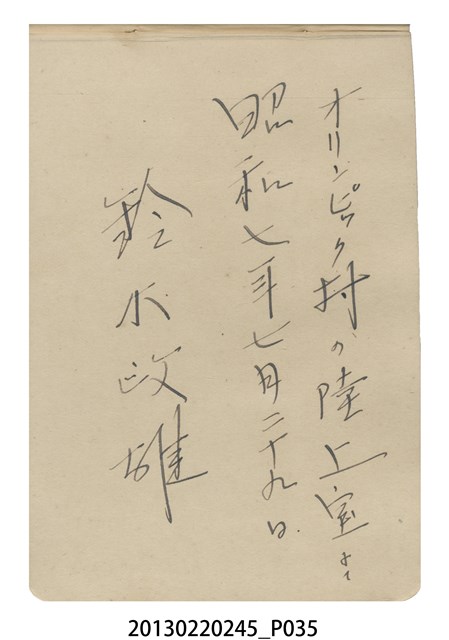 オリンピック村の陸上室にて
昭和七年七月二十九日
鈴木政雄
20130220245_P035